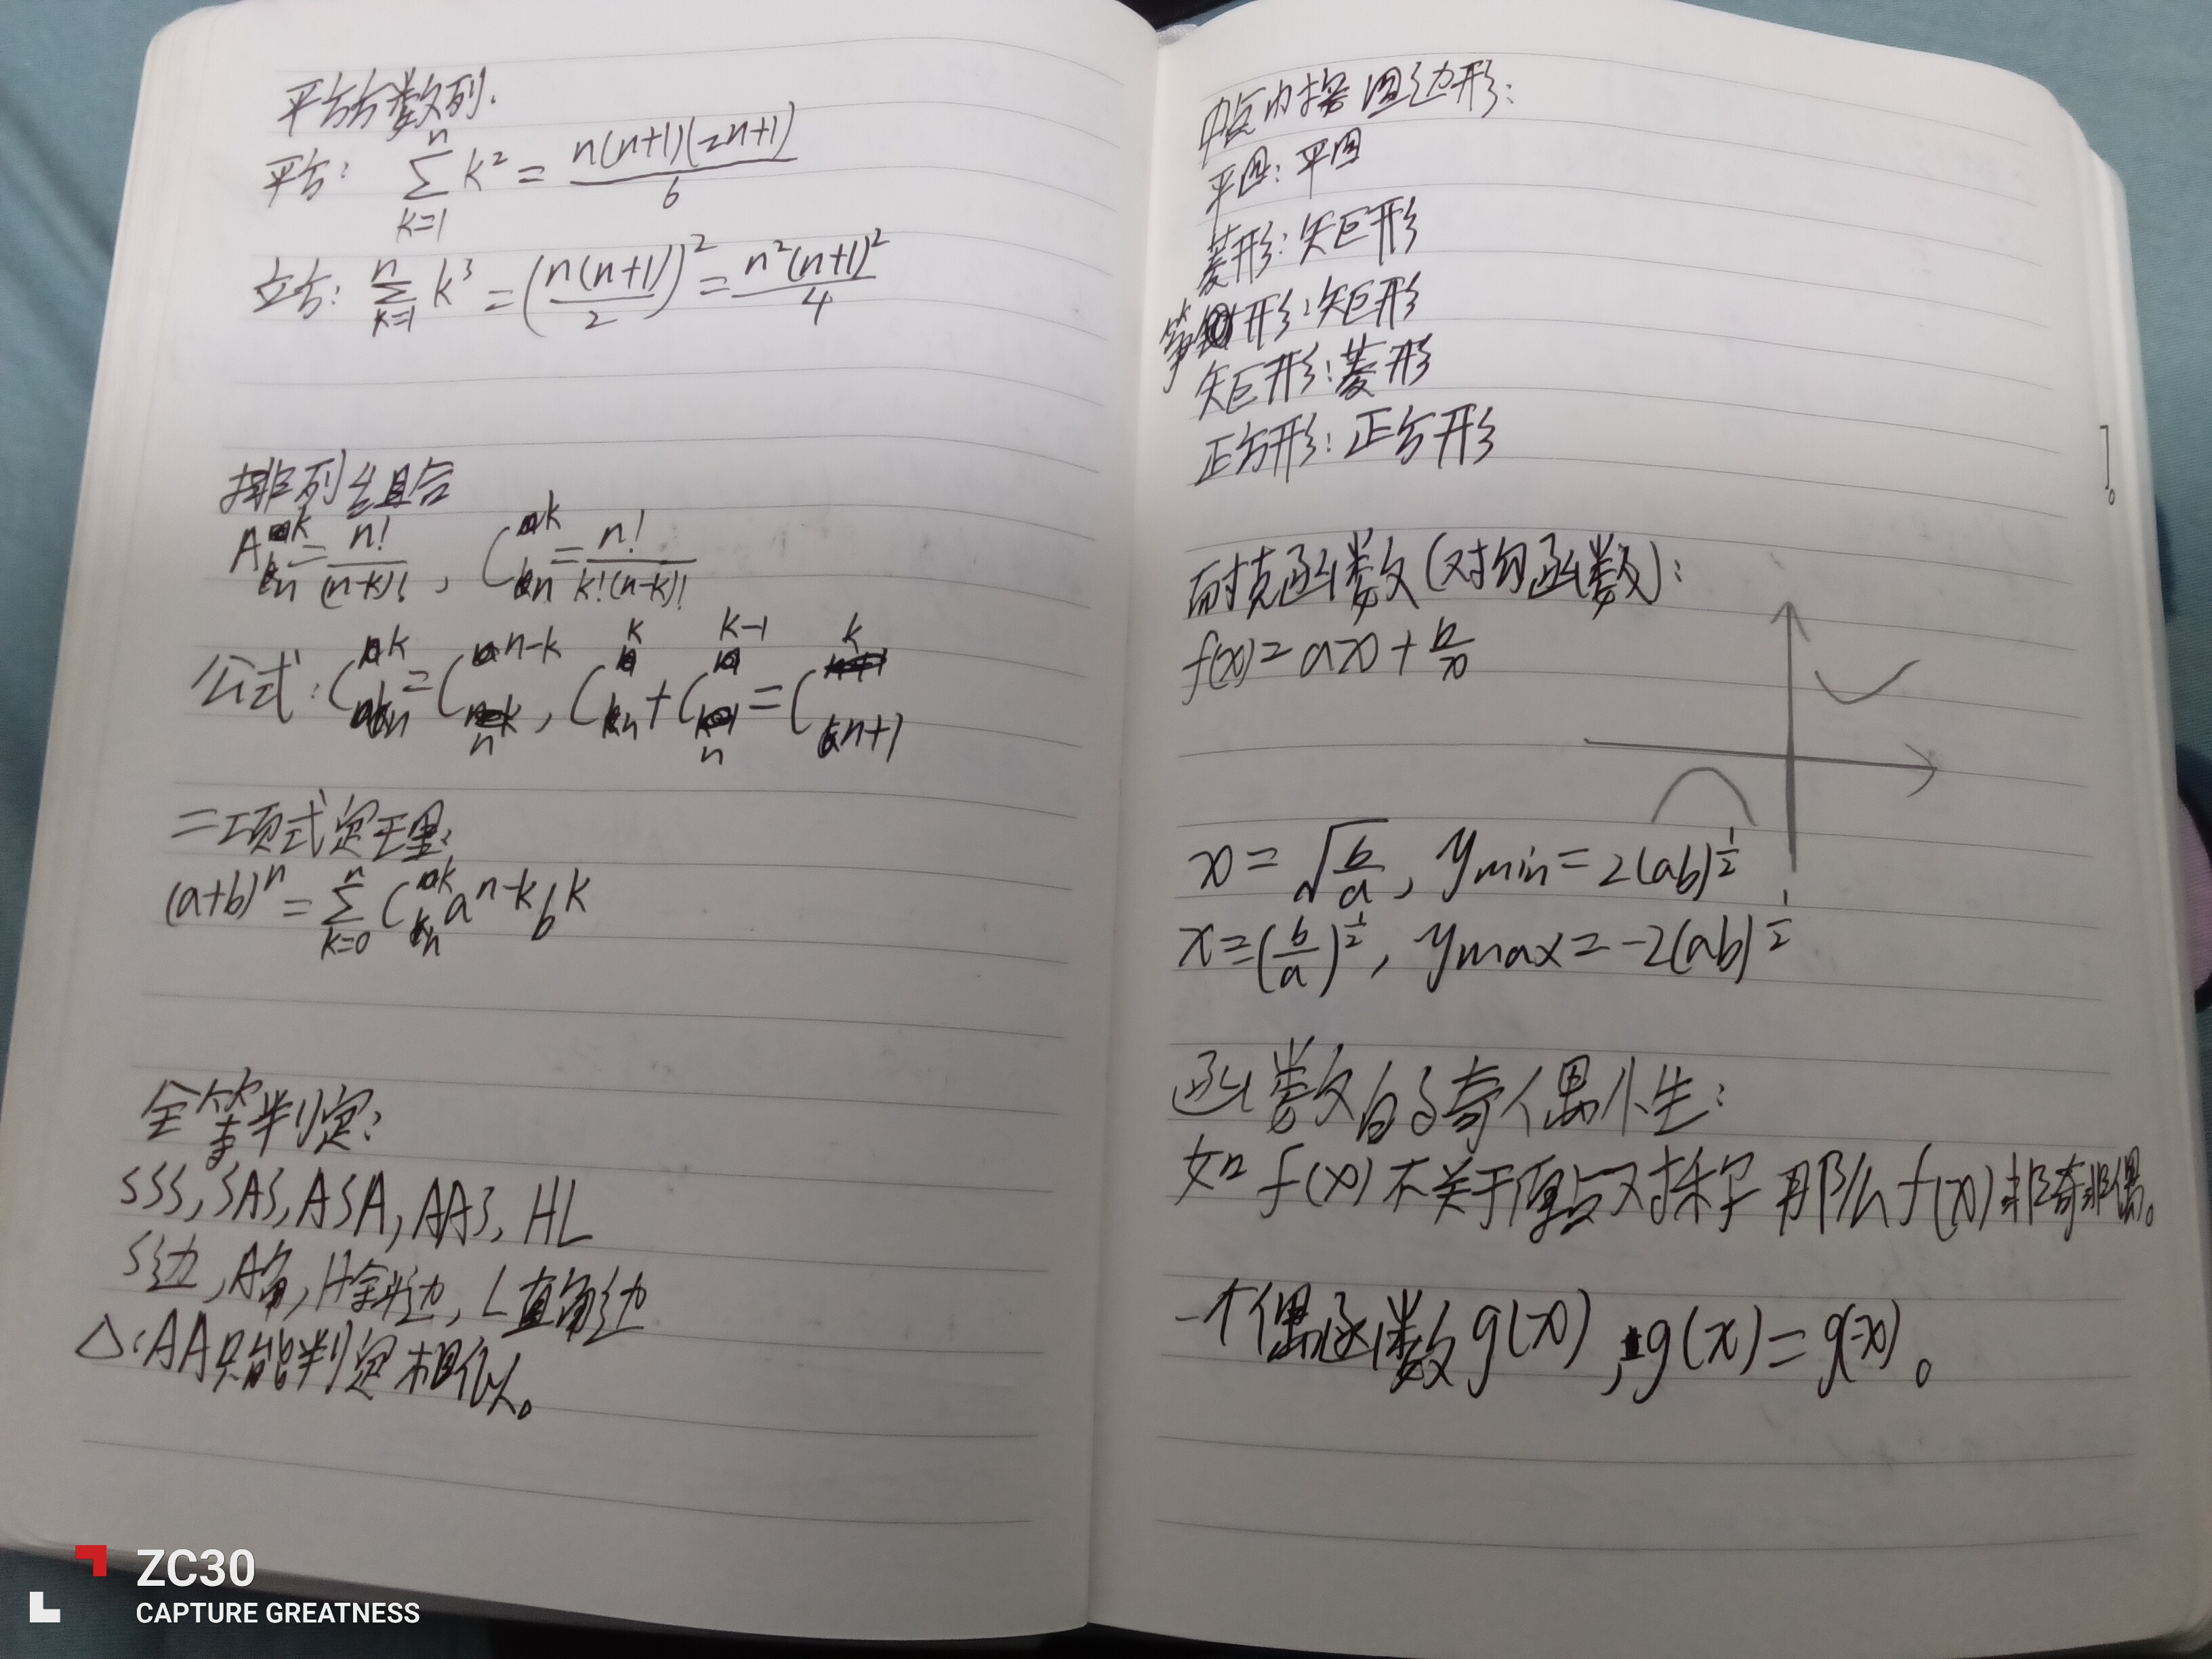 平方数列.
平方: \sum_{k=1}^{n} k^2 = \frac{n(n+1)(2n+1)}{6}
立方: \sum_{k=1}^{n} k^3 = \left(\frac{n(n+1)}{2}\right)^2 = \frac{n^2(n+1)^2}{4}
排列组合
A_n^k = \frac{n!}{(n-k)!}, C_n^k = \frac{n!}{k!(n-k)!}
公式: C_n^k = C_n^{n-k}, C_n^k + C_n^{k-1} = C_{n+1}^k
二项式定理:
(a+b)^n = \sum_{k=0}^{n} C_n^k a^{n-k} b^k
全等判定:
SSS, SAS, ASA, AAS, HL
S边, A角, H斜边, L直角边
△: AA只能判定相似。
中点内接四边形:
平四: 平四
菱形: 矩形
筝形: 矩形
矩形: 菱形
正方形: 正方形
耐克函数(对勾函数):
f(x) = ax + \frac{b}{x}
x = \sqrt{\frac{b}{a}}, y min = 2(ab)^{\frac{1}{2}}
x = (\frac{b}{a})^{\frac{1}{2}}, y max = -2(ab)^{\frac{1}{2}}
函数的奇偶性:
如 f(x) 不关于原点对称 那么 f(x) 非奇非偶。
一个偶函数 g(x), g(x) = g(-x)。
ZC30
CAPTURE GREATNESS